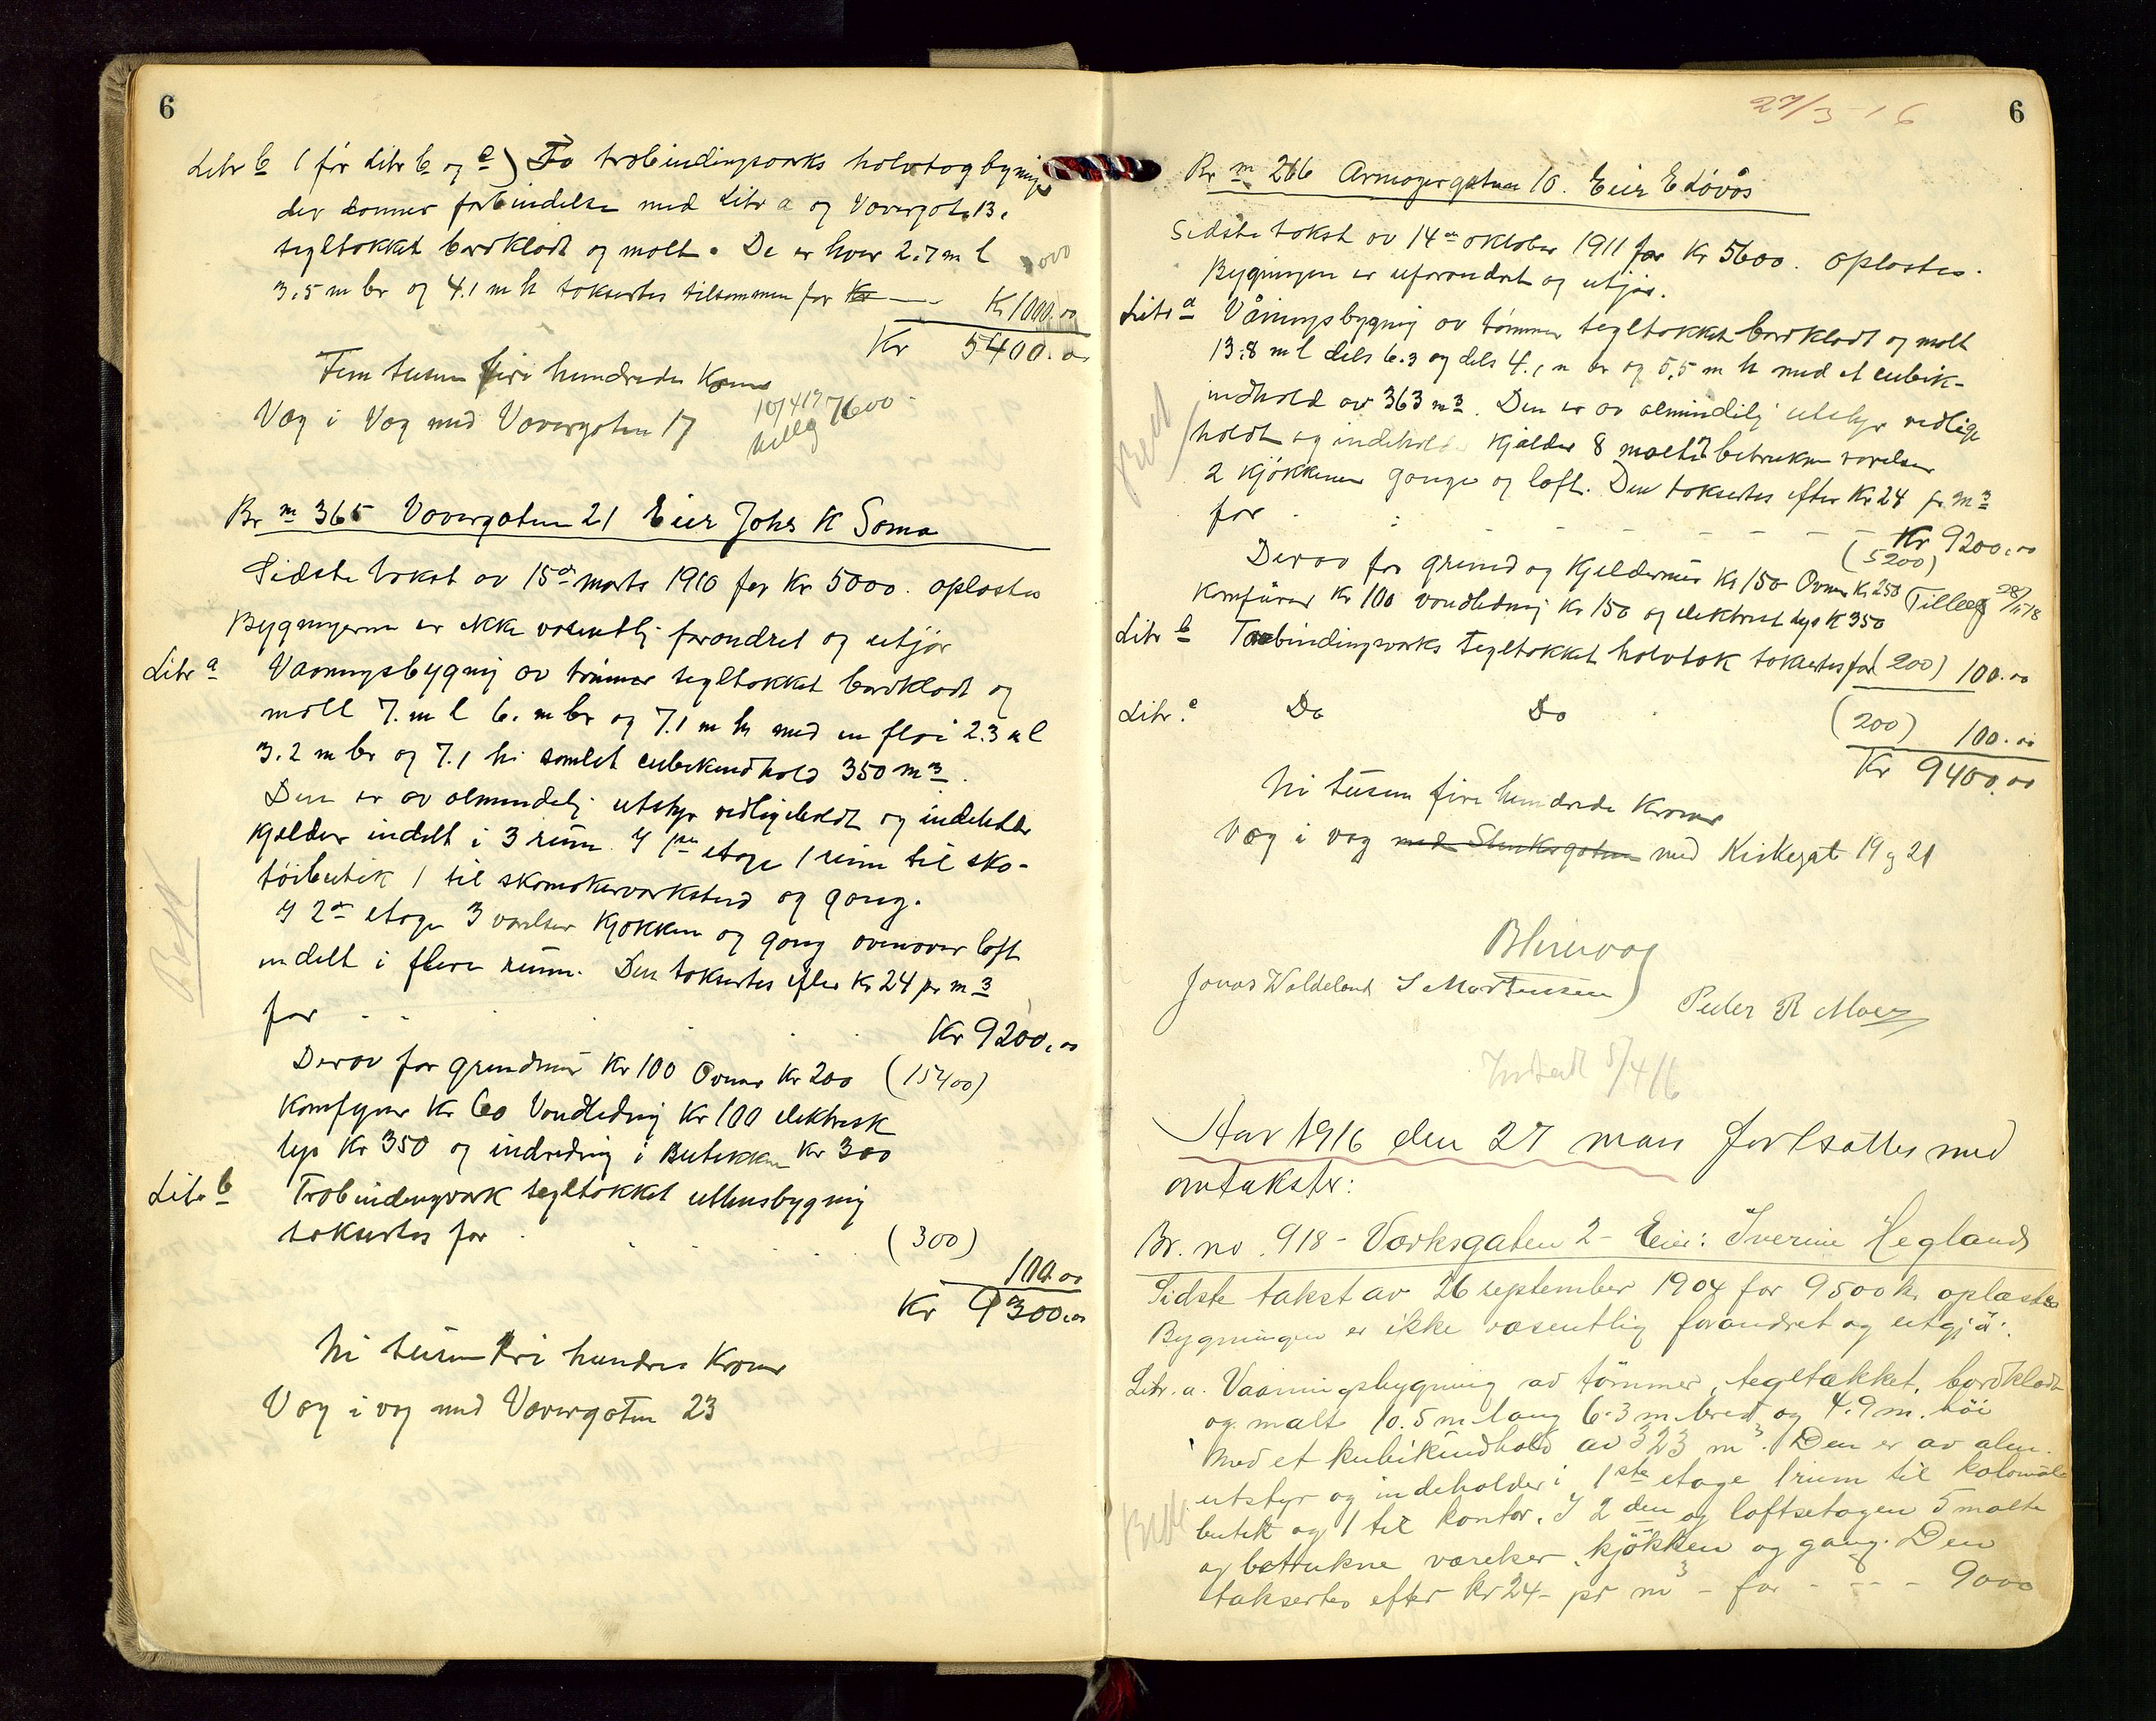 6
Litr b (før Litr b og c) To trobindingsverks halvtagbygninger
der danner forbindelse med Litr a og Vovergote 13.
tegltækket bordklædt og malt. De er hver 2.7 m l
3.5 m br og 4.1 m h taksertes tilsammen for Kr
Kr 1000.00
Kr 5400.00
Fem tusen fire hundrede Kroner
Væg i Væg med Vævergaten 17
10/4 17 7600
tillæg
Br no 365 Vævergaten 21 Eier Johs K Soma
Sidste takst av 15de marts 1910 for Kr 5000. oplæstes
Bygningerne er ikke væsentlig forandret og utgjør
Litr a Vaaningsbygning av tømmer tegltækket bordklædt og
malt 7. m l 6. m br og 7.1 m h med en fløi 2.3 m l
3.2 m br og 7.1 h. samlet cubikindhold 350 m3.
Den er av almindelig utstyr vedligeholdt og indeholder
Kjelder indelt i 3 rum. I 1ste etage 1 rum til sko-
tøibutik 1 til skomakerværksted og gang.
I 2den etage 3 værelser Kjøkken og gang ovenover loft
indelt i flere rum. Den taksertes efter Kr 24 pr m3
for
Kr 9200.00
Derav for grundmur Kr 100 Ovner Kr 200 (15400)
Komfyrer Kr 60 Vandledning Kr 100 elektrisk
lys Kr 350 og indredning i Butikken Kr 300
Litr b Trobindingsverk tegltækket uthusbygning
taksertes for (300)
100.00
Kr 9300.00
Ni tusen tre hundrede Kroner
Væg i væg med Vævergaten 23
27/3-16
6
Br no 266 Armauergaten 10. Eier E Løvås
Sidste takst av 14de oktober 1911 for Kr 5600. oplæstes.
Bygningen er uforandret og utgjør.
Litr a Våningsbygning av tømmer tegltækket bordklædt og malt
13.8 m l dels 6.3 og dels 4.1 m br og 5,5 m h med et cubik-
indhold av 363 m3. Den er av almindelig utstyr vedlige
holdt og indeholder Kjelder 8 malte betrukne værelser
2 Kjøkkener gange og loft. Den taksertes efter Kr 24 pr. m3
for
Kr 9200.00
(5200)
Derav for grund og Kjeldermur Kr 150 Ovner Kr 250
Tillæg 28/11 18
Komfürer Kr 100 vandledning Kr 150 og elektrisk lys Kr 350
Litr b Trobindingsverks tegltækket halvtak taksertes for (200) 100.00
Litr. c Do Do (200) 100.00
Kr 9400.00
Ni tusen fire hundrede Kroner
Væg i væg med Kirkegat 19 og 21
Jonas Waldeland S Martensen
Peder R Moe
5/4 16
Aar 1916 den 27 mars fortsattes med
omtakster:
Br. no. 918 - Værksgaten 2 - Eier: Iverine Hegland
Sidste takst av 26 september 1904 for 9500 kr. oplæstes
Bygningen er ikke væsentlig forandret og utgjør.
Litr. a. Vaaningsbygning av tömmer, tegltækket, bordklædt
og malt 10.5 m lang 6.3 m. bred og 4.9 m. höi
med et kubikindhold av 323 m3. Den er av alm.
utstyr og indeholder i 1ste etage 1 rum til kolonial
butik og 1 til kontor. I 2den og loftsetagen 5 malte
og betrukne værelser, kjökken og gang. Den
taksertes efter kr 24 - pr m3 - for - - - 9000